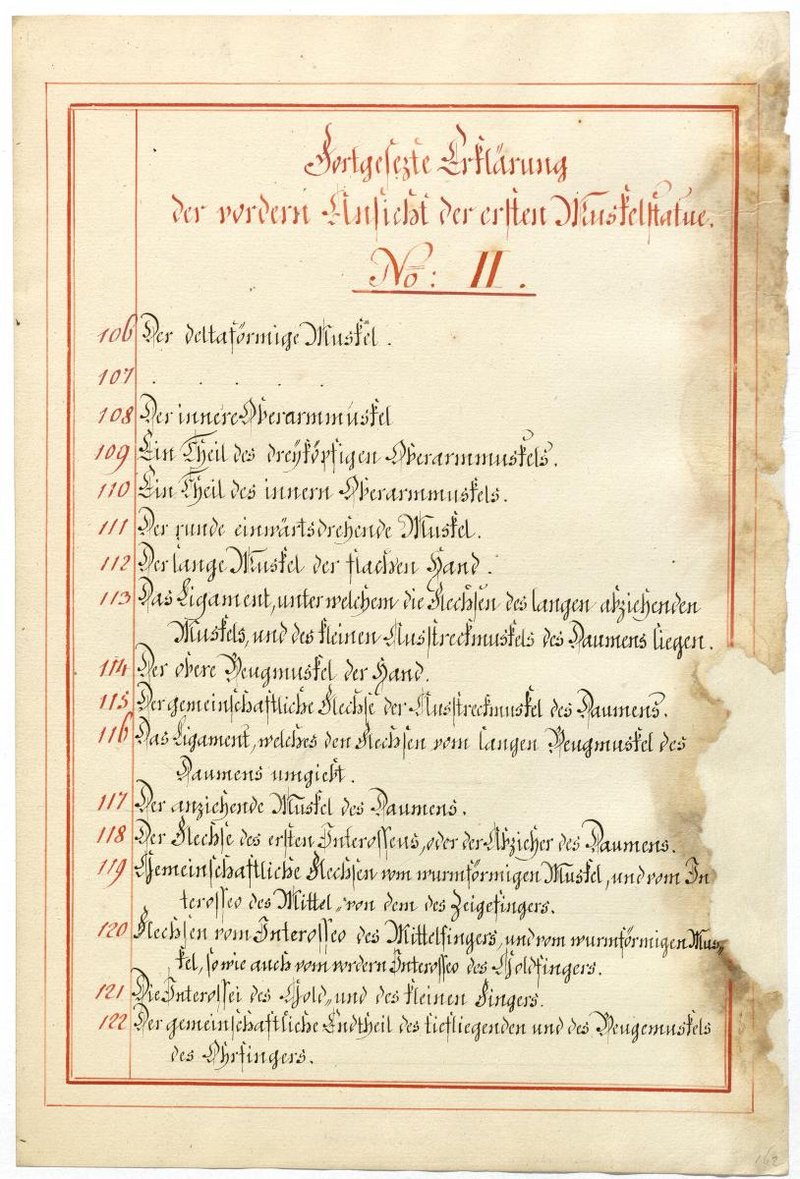 Fortgesezte Erklärung
der vordern Ansicht der ersten Muskelstatue.
No: II.
106 Der deltaförmige Muskel.
107 . . . . .
108 Der innere Oberarmmuskel
109 Ein Theil des dreyköpfigen Oberarmmuskels.
110 Ein Theil des innern Oberarmmuskels.
111 Der runde einwärtsdrehende Muskel.
112 Der lange Muskel der flachen Hand.
113 Das Ligament, unter welchem die Flechsen des langen abziehenden
Muskels, und des kleinen Ausstreckmuskels des Daumens liegen.
114 Der obere Beugmuskel der Hand.
115 Der gemeinschaftliche Flechse der Ausstreckmuskel des Daumens.
116 Das Ligament, welches den Flechsen vom langen Beugmuskel des
Daumens umgiebt.
117 Der anziehende Muskel des Daumens.
118 Der Flechse des ersten Interosseus, oder der Abzieher des Daumens.
119 Gemeinschaftliche Flechsen vom wurmförmigen Muskel, und vom In
terosseo des Mittel„ von dem des Zeigefingers.
120 Flechsen vom Interosseo des Mittelfingers, und vom wurmförmigen Mus„
kel, so wie auch vom vordern Interosseo des Goldfingers.
121 Die Interossei des Gold„ und des kleinen Fingers.
122 Der gemeinschaftliche Endtheil des tiefliegenden und des Beugemuskels
des Ohrfingers.